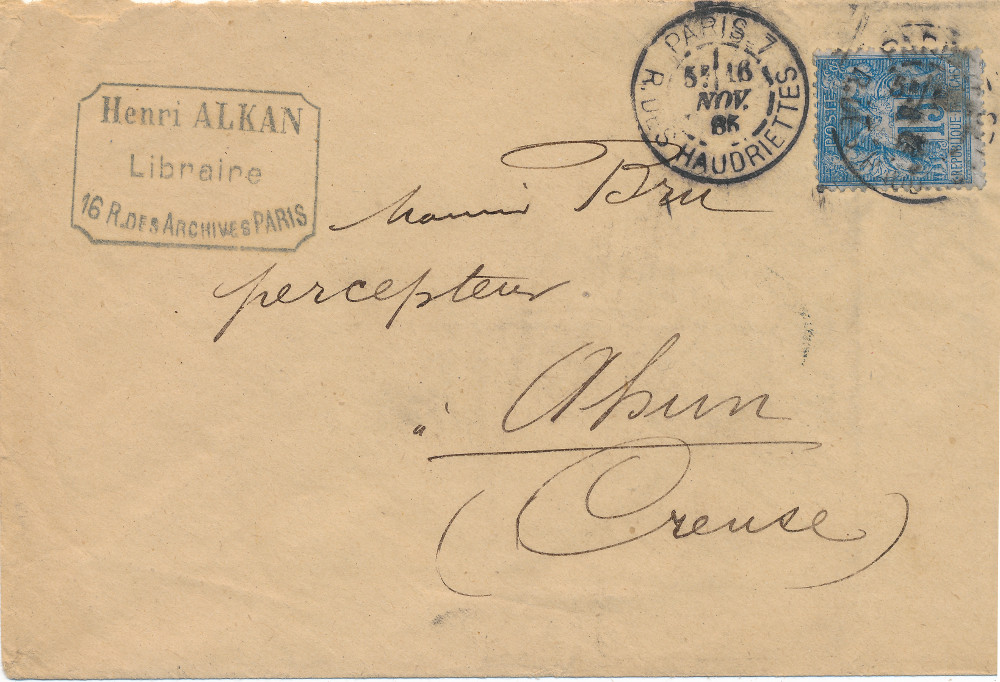 Henri ALKAN
Libraire
16 R. DES ARCHIVES PARIS
PARIS 7
5E 16
NOV.
85
R. DES HAUDRIETTES
POSTES
15
REPUBLIQUE
Monsieur Bru
percepteur
à Ahun
(Creuse)